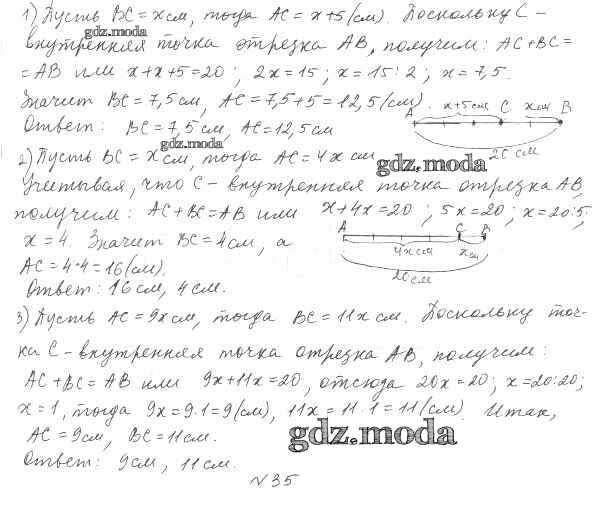 1) Пусть BC = x см, тогда AC = x+5 (см). Поскольку C –
gdz.moda
внутренняя точка отрезка AB, получим: AC+BC =
= AB или x+x+5=20; 2x=15; x=15:2; x=7,5.
Значит BC=7,5см, AC=7,5+5=12,5(см).
A x+5см C xсм B
Ответ: BC=7,5см, AC=12,5см
20 см
gdz.moda
2) Пусть BC = xсм, тогда AC = 4x см
gdz.moda
Учитывая, что C – внутренняя точка отрезка AB,
получим: AC+BC=AB или x+4x=20; 5x=20; x=20:5;
x=4. Значит BC=4см, а
A C B
4xсм xсм
AC=4·4=16(см).
20см
Ответ: 16см, 4см.
3) Пусть AC=9xсм, тогда BC=11xсм. Поскольку точ-
ка C – внутренняя точка отрезка AB, получим:
AC+BC=AB или 9x+11x=20, отсюда 20x=20; x=20:20;
x=1, тогда 9x=9·1=9(см), 11x=11·1=11(см). Итак,
AC=9см, BC=11см.
gdz.moda
Ответ: 9см, 11см.
№35